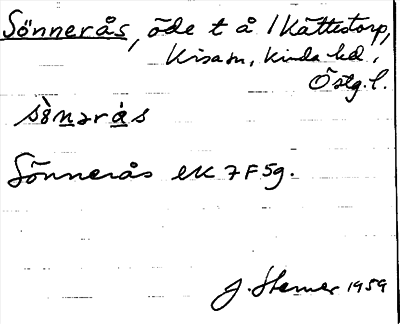 Sönnerås, öde t å 1 Kättestorp,
Kisa sn, Kinda hd,
Östg. l.
sö̀nərá̀s
Sönnerås ek 7 F 5g.
J. Stemer 1959